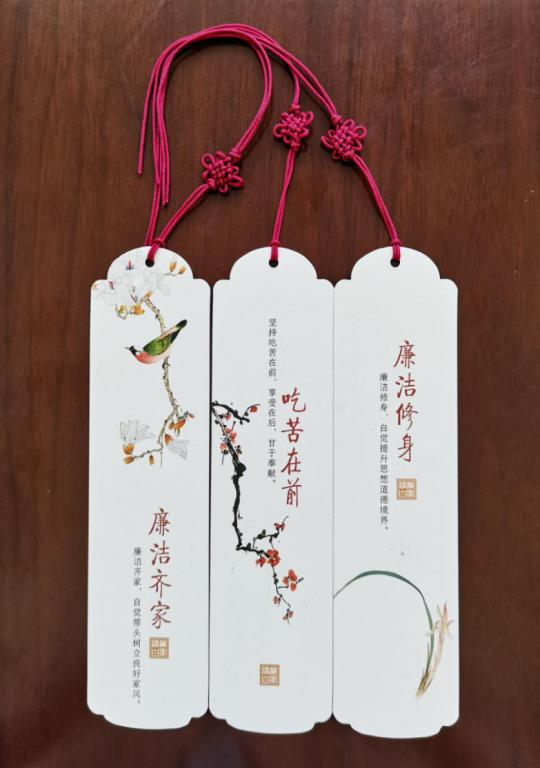 廉洁齐家
廉洁齐家，自觉带头树立良好家风。
坚持吃苦在前，享受在后，甘于奉献。
吃苦在前
廉洁修身
廉洁修身，自觉提升思想道德境界。